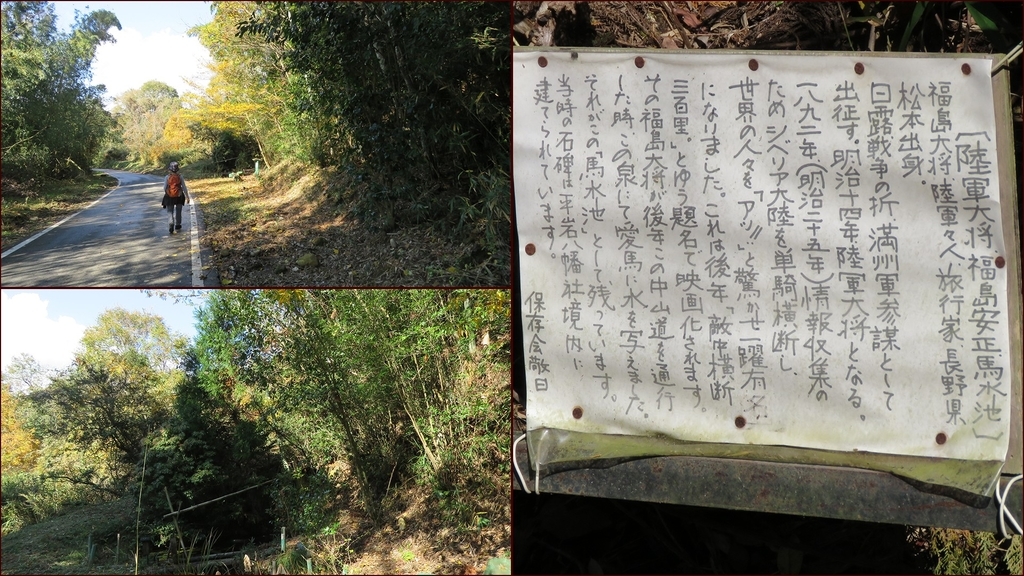 〔陸軍大将福島安正馬水池〕
福島大将 陸軍々人 旅行家 長野県
松本出身。
日露戦争の折、満州軍参謀として
出征す。明治十四年陸軍大将となる。
一八九二年(明治二十五年)情報収集の
ためシベリア大陸を単騎横断し、
世界の人々を「アッ!!」と驚かせ一躍有名
になりました。これは後年「敵中横断
三百里。」とゆう題名で映画化されます。
その福島大将が後年この中山道を通行
した時この泉にて愛馬に水を写えました。
それがこの「馬水池」として残っています。
当時の石碑は平岩八幡社境内に
建てられています。
保存会敬白